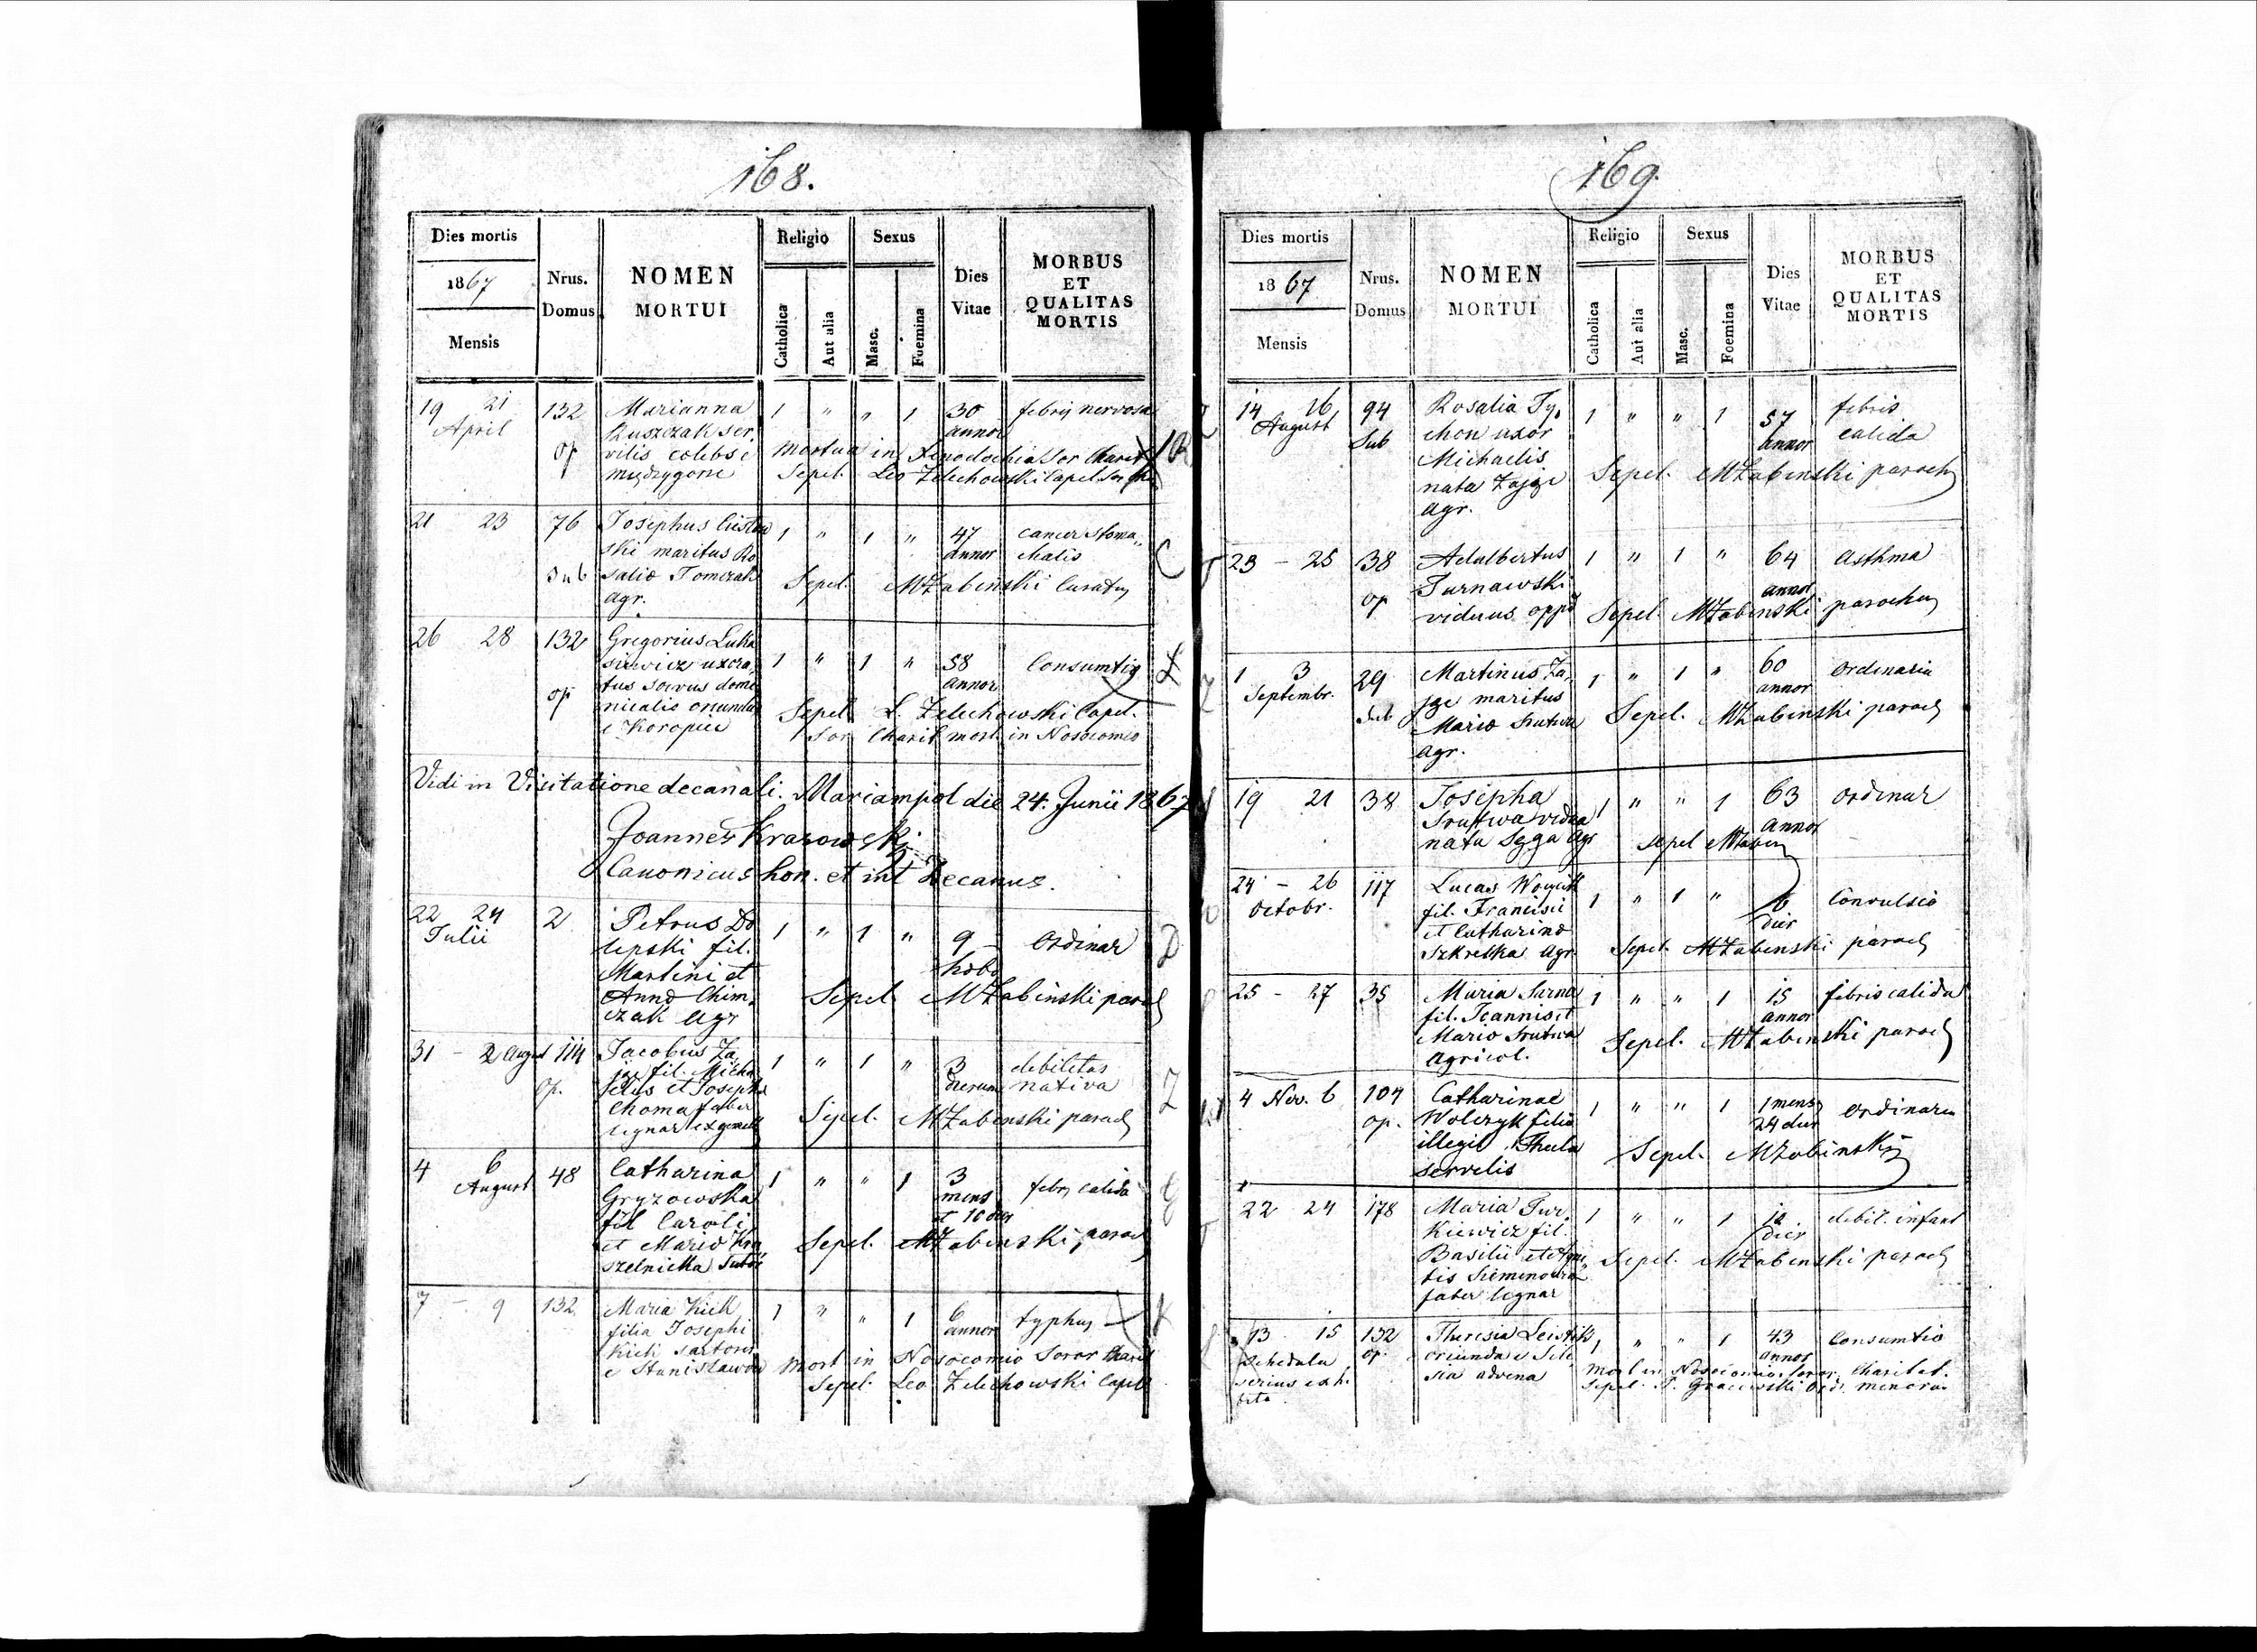 168.
Dies mortis
1867
Mensis
Nrus.
Domus
NOMEN
MORTUI
Religio
Catholica
Aut alia
Sexus
Masc.
Foemina
Dies
Vitae
MORBUS
ET
QUALITAS
MORTIS
19 21 132 Marianna 1 " " 1 30 febris nervosa
April Ruszczak ser annor
op vilis coelebs e mortua in Xenodochia Sor Charit
Sepel. Leo Zelechowski Capel Sor
21 23 76 Josephus 1 " 1 " 47 cancer stoma
ski maritus Ro annor chalis
Sub salie Tomczak Sepel. MZabinski Curatus
agr.
26 28 132 Gregorius Luka
siewicz uxora 1 " 1 " 58 Consumtio
op tus servus domi annor
nicalis oriundus Sepel. L. Zelechowski Capel.
e Koropiec Sor Charit mort in Nosocomio
Vidi in Visitatione decanali. Mariampol die 24. Junii 1867
Joannes Krasowski
Canonicus hon. et int Decanus.
22 24 2 Petrus Do 1 " 1 " 9 Ordinar
Julii lepski fil. hebd
Martini et
Anna Chim Sepel MZabinski paroch
czak agr
31 - 2 August 114 Jacobus Za 1 " 1 " 3 debilitas
op. jąc fil. Micha dierum nativa
elis et Josepha
Choma faber Sepel. MZabinski paroch
lignar
4 6 48 Catharina 1 " " 1 3 febris calida
August Gryzowska mens
fil Caroli et 10 dier
et Maria Sepel. MZabinski paroch
szelnicka
7 - 9 132 Maria Kich 1 " " 1 6 typhus
filia Josephi annor
Kich Sartoris mort in Nosocomio Soror Charit
e Stanislawow Sepel. Leo Zelechowski Capel
169.
Dies mortis
1867
Mensis
Nrus.
Domus
NOMEN
MORTUI
Religio
Catholica
Aut alia
Sexus
Masc.
Foemina
Dies
Vitae
MORBUS
ET
QUALITAS
MORTIS
14 16 94 Rosalia Ty 1 " " 1 57 febris
August Sub chon uxor annor calida
Michaelis Sepel. MZabinski paroch
nata Zając
agr.
23 - 25 38 Adalbertus 1 " 1 " 64 Asthma
op Turnawski annor
viduus oppd Sepel. MZabinski parochus
1 3 29 Martinus Za 1 " 1 " 60 Ordinaria
Septembr. jąc maritus annor
Sub Maria Srutwa Sepel. MZabinski paroch
agr.
19 21 38 Josepha 1 " " 1 63 Ordinar
Srutwa vidua annor
nata Sęga agr Sepel MZabin
24 - 26 117 Lucas Woycik 1 " 1 " 6 Convulsio
Octobr. fil. Francisci dier
et Catharina Sepel. MZabinski paroch
Szkretka agr
25 - 27 35 Maria Sarna 1 " " 1 15 febris calida
fil. Joannis et annor
Maria Srutwa Sepel. MZabinski paroch
agricol.
4 Nov. 6 104 Catharinae 1 " " 1 1 mens Ordinaria
op. Wolczyk filia 24 dier
illegit Thecla Sepel. MZabinski
servilis
22 24 178 Maria Tur 1 " " 1 dier debil. infant
kiewicz fil.
Basilii et Agne Sepel. MZabinski paroch
tis
faber lignar
13 15 132 Theresia 1 " " 1 43 Consumtio
Schedula op. oriunda e Sile annor
serius exhi sia advena mort in Nosocomio Soror. Charitat.
bita Sepel. Ord. minorum